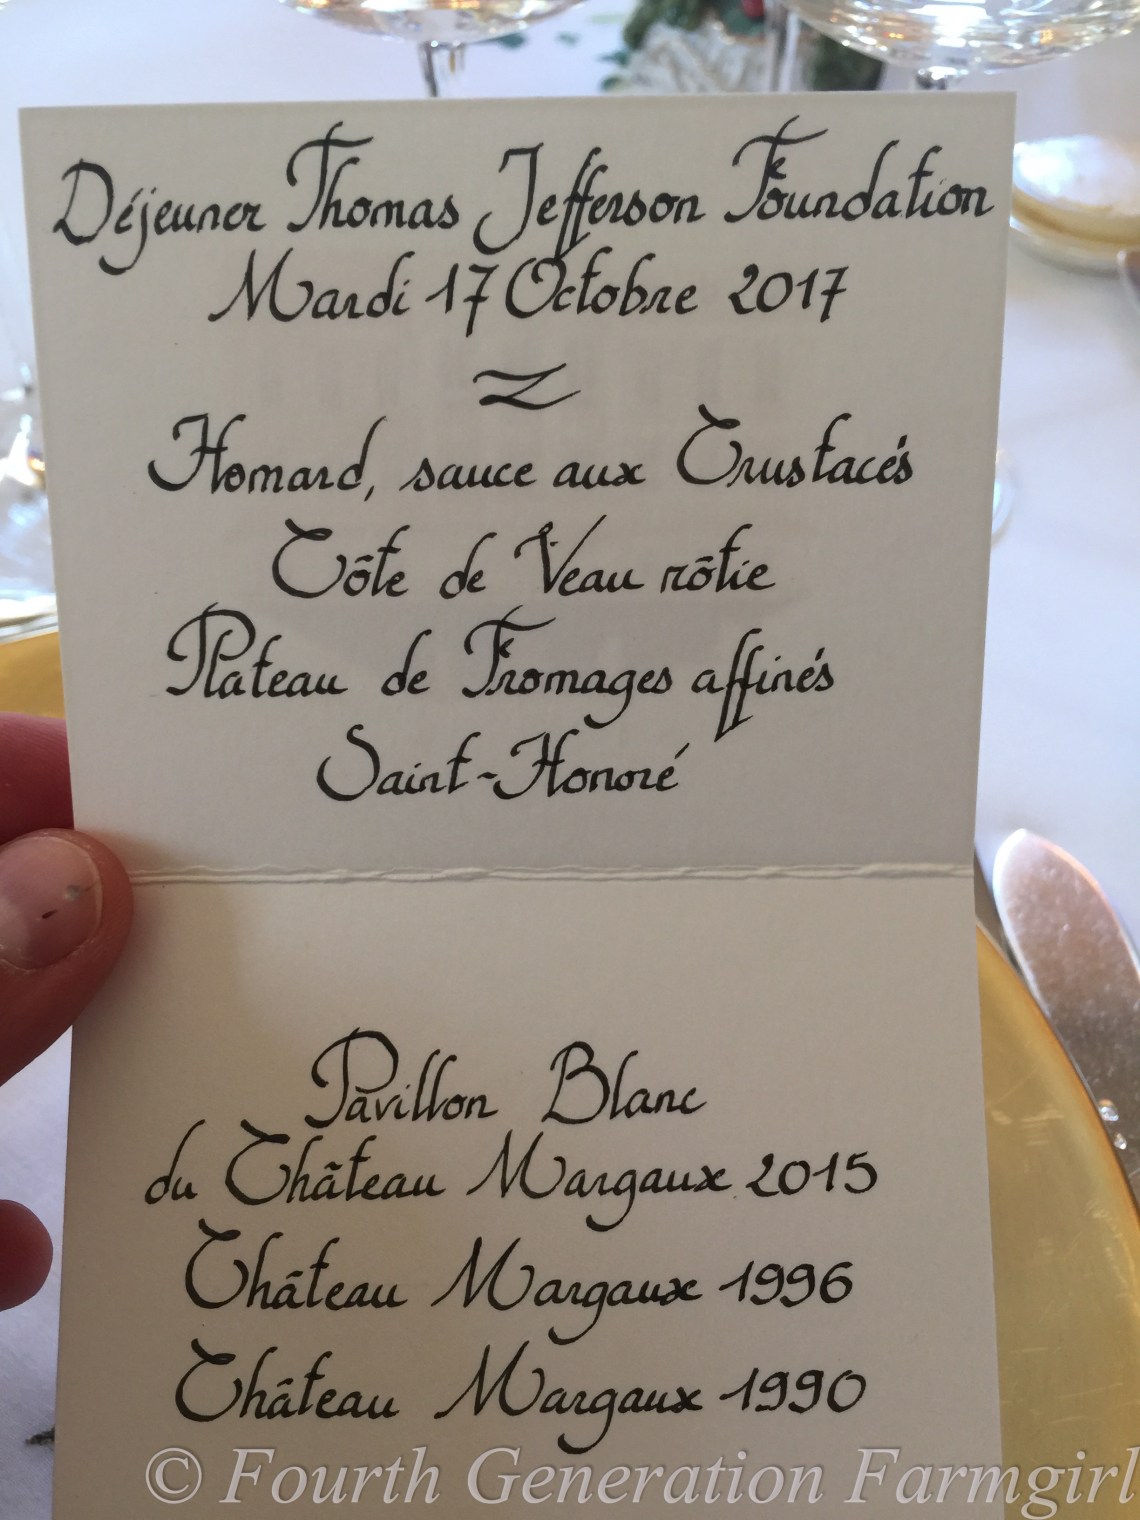 Déjeuner Thomas Jefferson Foundation
Mardi 17 Octobre 2017
Homard, sauce aux Crustacés
Côte de Veau rôtie
Plateau de Fromages affinés
Saint-Honoré
Pavillon Blanc
du Château Margaux 2015
Château Margaux 1996
Château Margaux 1990
© Fourth Generation Farmgirl